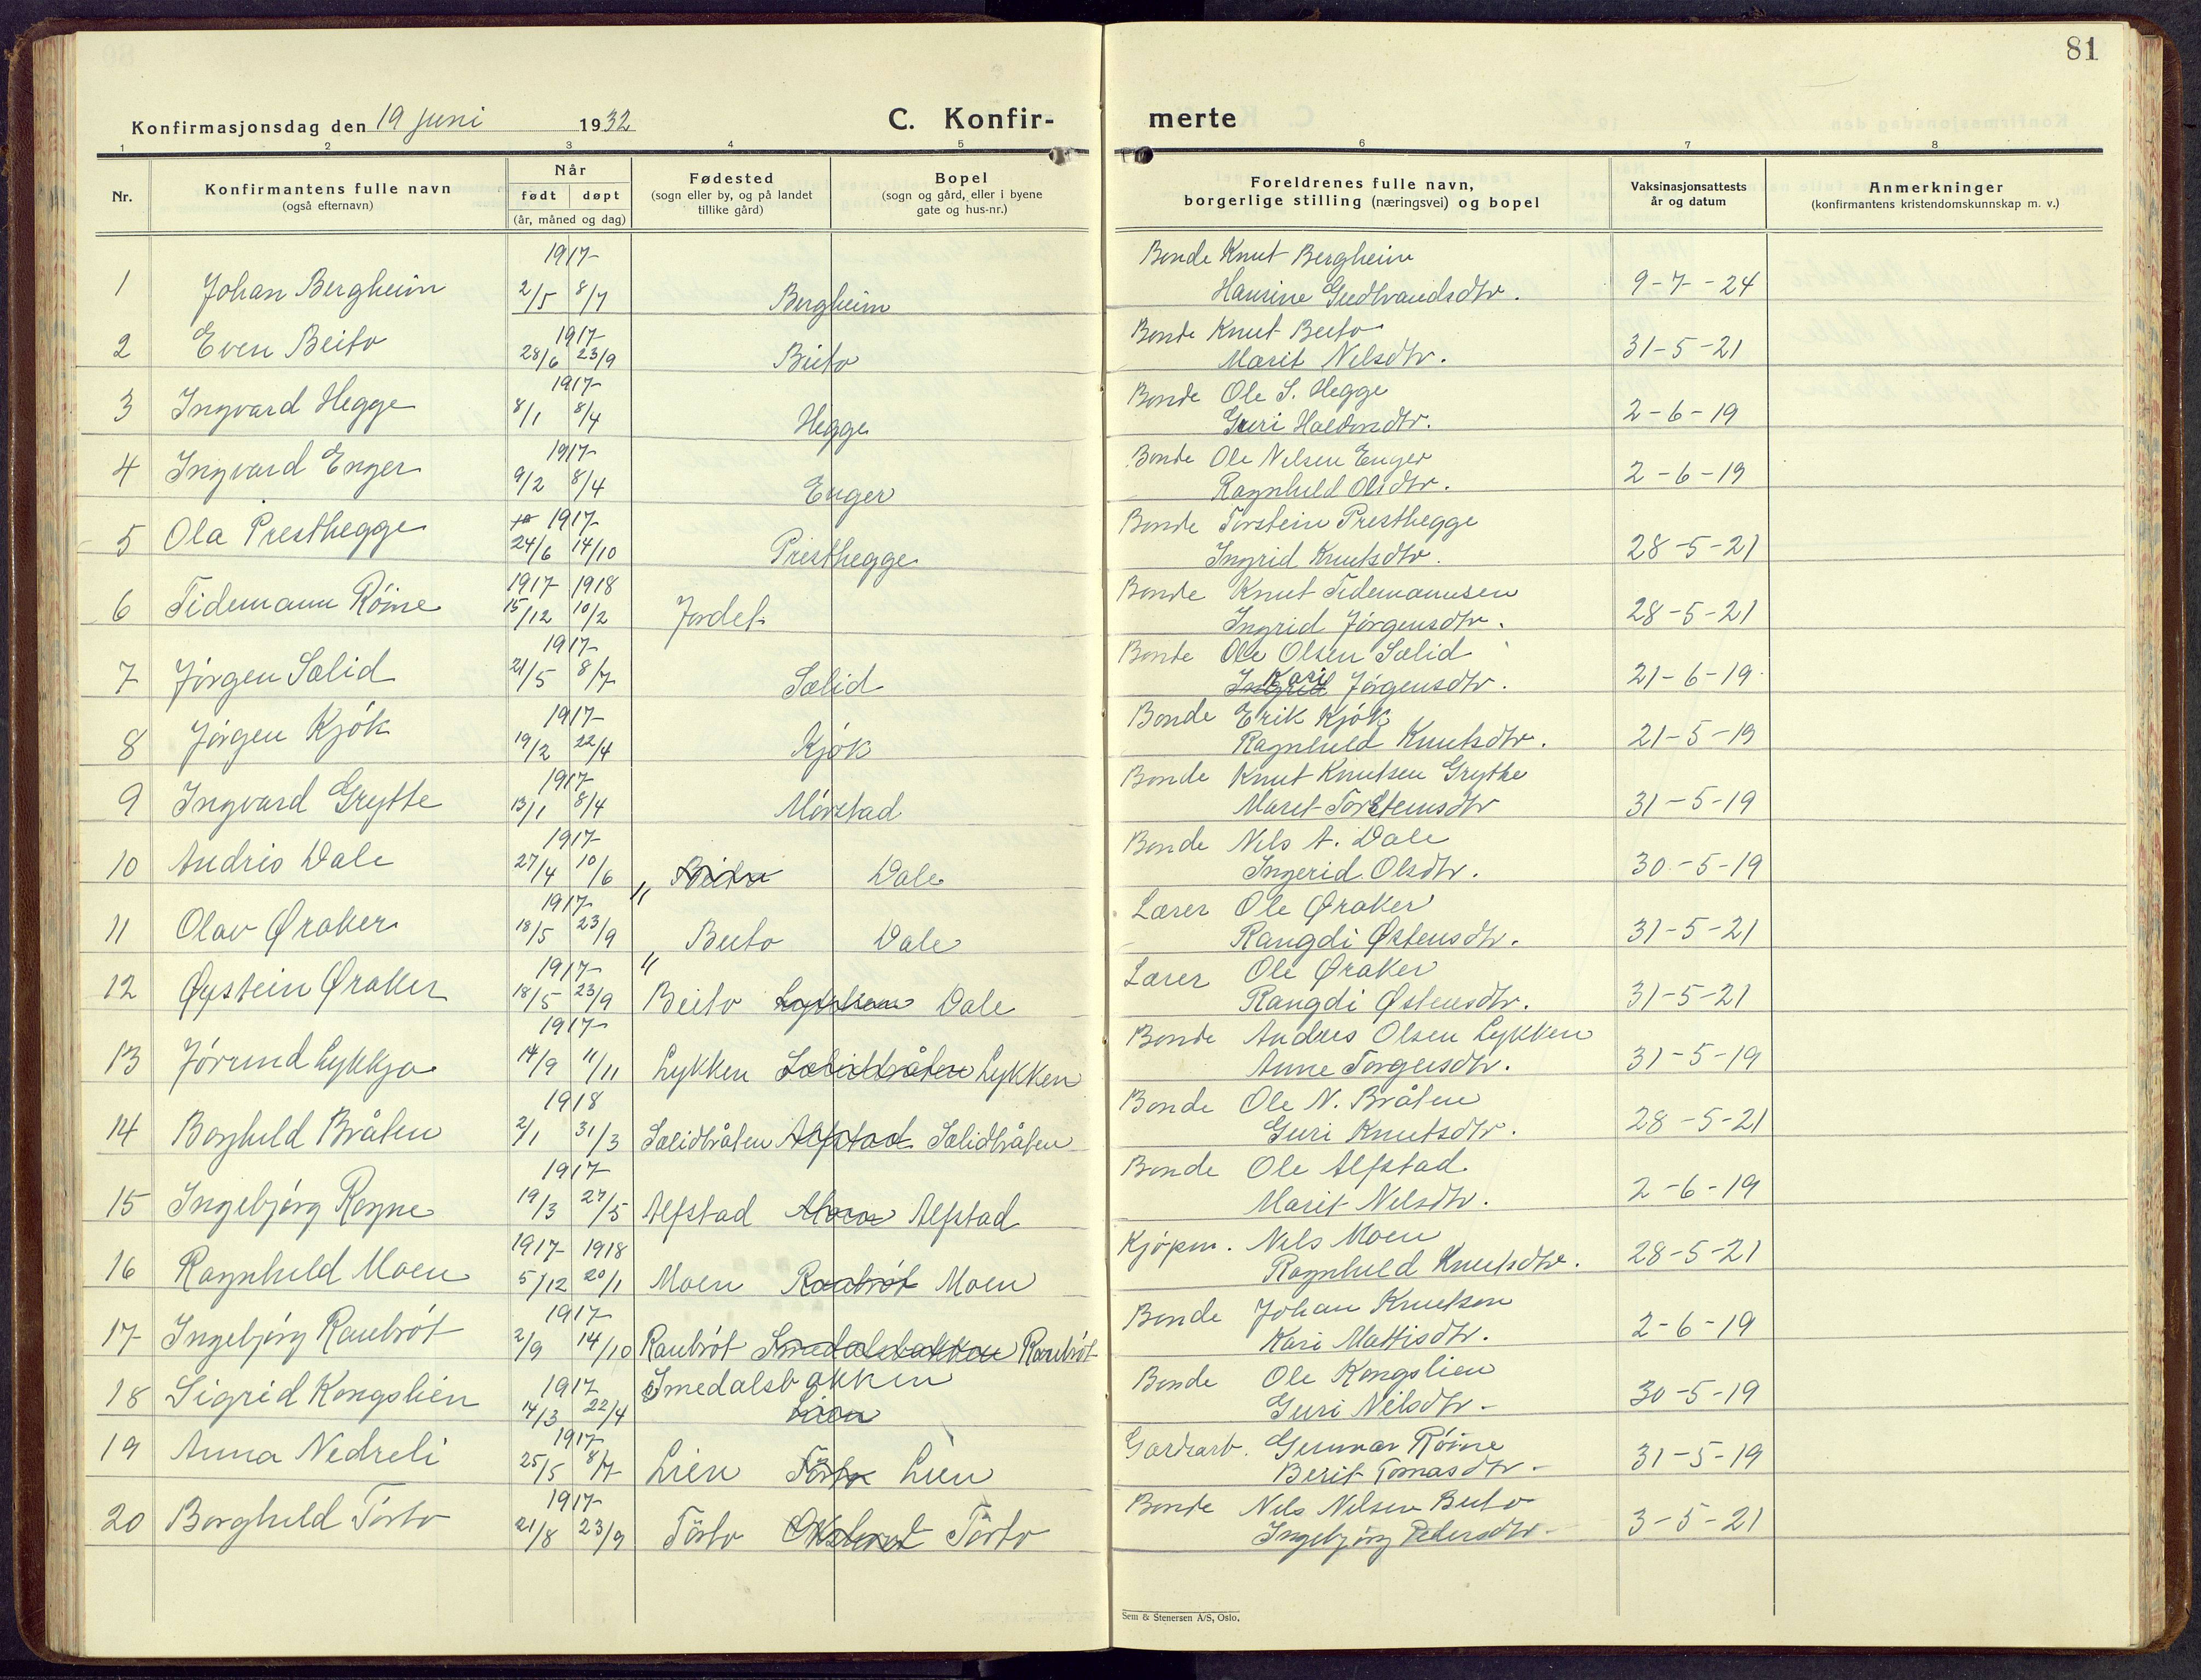 81
Konfirmasjonsdag den 19 juni 1932 C. Konfir- merte
1 2 3 4 5 6 7 8
Nr. Konfirmantens fulle navn (også efternavn) Når født døpt (år, måned og dag) Fødested (sogn eller by, og på landet tillike gård) Bopel (sogn og gård, eller i byene gate og hus-nr.) Foreldrenes fulle navn, borgerlige stilling (næringsvei) og bopel Vaksinasjonsattests år og datum Anmerkninger (konfirmantens kristendomskunnskap m. v.)
1917 Bonde Knut Bergheim
1 Johan Bergheim 2/5 8/7 Bergheim Hansine Gudbrandsdtr. 9-7-24
1917 Bonde Knut Beito
2 Even Beito 28/6 23/9 Beito Marit Nilsdtr. 31-5-21
1917 Bonde Ole S. Hegge
3 Ingvard Hegge 8/1 8/4 Hegge Guri 2-6-19
1917 Bonde Ole Nilsen Enger
4 Ingvard Enger 9/2 8/4 Enger Ragnhild Olsdtr. 2-6-19
1917 Bonde Torstein Presthegge
5 Ola Presthegge 24/6 14/10 Presthegge Ingrid Knutsdtr. 28-5-21
1917 1918 Bonde Knut Tidemannsen
6 Tidemann Röine 15/12 10/2 Jordet Ingrid Jörgensdtr. 28-5-21
1917 Bonde Ole Olsen Sælid
7 Jörgen Sælid 21/5 8/7 Sælid Ingrid Kari Jörgensdtr. 21-6-19
1917 Bonde Erik Kjök
8 Jörgen Kjök 19/2 22/4 Kjök Ragnhild Knutsdtr. 21-5-19
1917 Bonde Knut Knutsen Grythe
9 Ingvard Grytte 13/1 8/4 Mörstad Marit Torsteinsdtr 31-5-19
1917 Bonde Nils A. Dale
10 Andris Dale 27/4 10/6 Beito Dale Ingerid Olsdtr. 30-5-19
1917 " Lærer Ole Øraker
11 Olav Øraker 18/5 23/9 Beito Dale Rangdi Østensdtr. 31-5-21
1917 " Lærer Ole Øraker
12 Øystein Øraker 18/5 23/9 Beito Dale Rangdi Østensdtr. 31-5-21
1917 Bonde Andres Olsen Lykken
13 Jörund Lykkja 14/9 11/11 Lykken Sælidbråten Lykken Anne Torgersdtr. 31-5-19
1918 Bonde Ole N. Bråten
14 Borghild Bråten 2/1 31/3 Sælidbråten Alfstad Sælidbråten Guri Knutsdtr. 28-5-21
1917 Bonde Ole Alfstad
15 Ingebjörg Rogne 19/3 27/5 Alfstad Moen Alfstad Marit Nilsdtr. 2-6-19
1917 1918 Kjöpm. Nils Moen
16 Ragnhild Moen 5/12 20/1 Moen Raubröt Moen Ragnhild Knutsdtr. 28-5-21
1917 Bonde Johan Knutsen
17 Ingebjörg Raubröt 2/9 14/10 Raubröt Smedalsbakken Raubröt Kari Mattisdtr. 2-6-19
1917 Smedalsbakken Bonde Ole Kongslien
18 Sigrid Kongslien 14/3 22/4 Lien Guri Nilsdtr- 30-5-19
1917 Gardsarb. Gunnar Röine
19 Anna Nedreli 25/5 8/7 Lien Törto Lien Berit Tomasdtr- 31-5-19
1917 Bonde Nils Nilsen Beito
20 Borghild Törto 21/8 23/9 Törto Törto Ingebjörg Pedersdtr- 3-5-21
Sem & Stenersen A/S, Oslo.